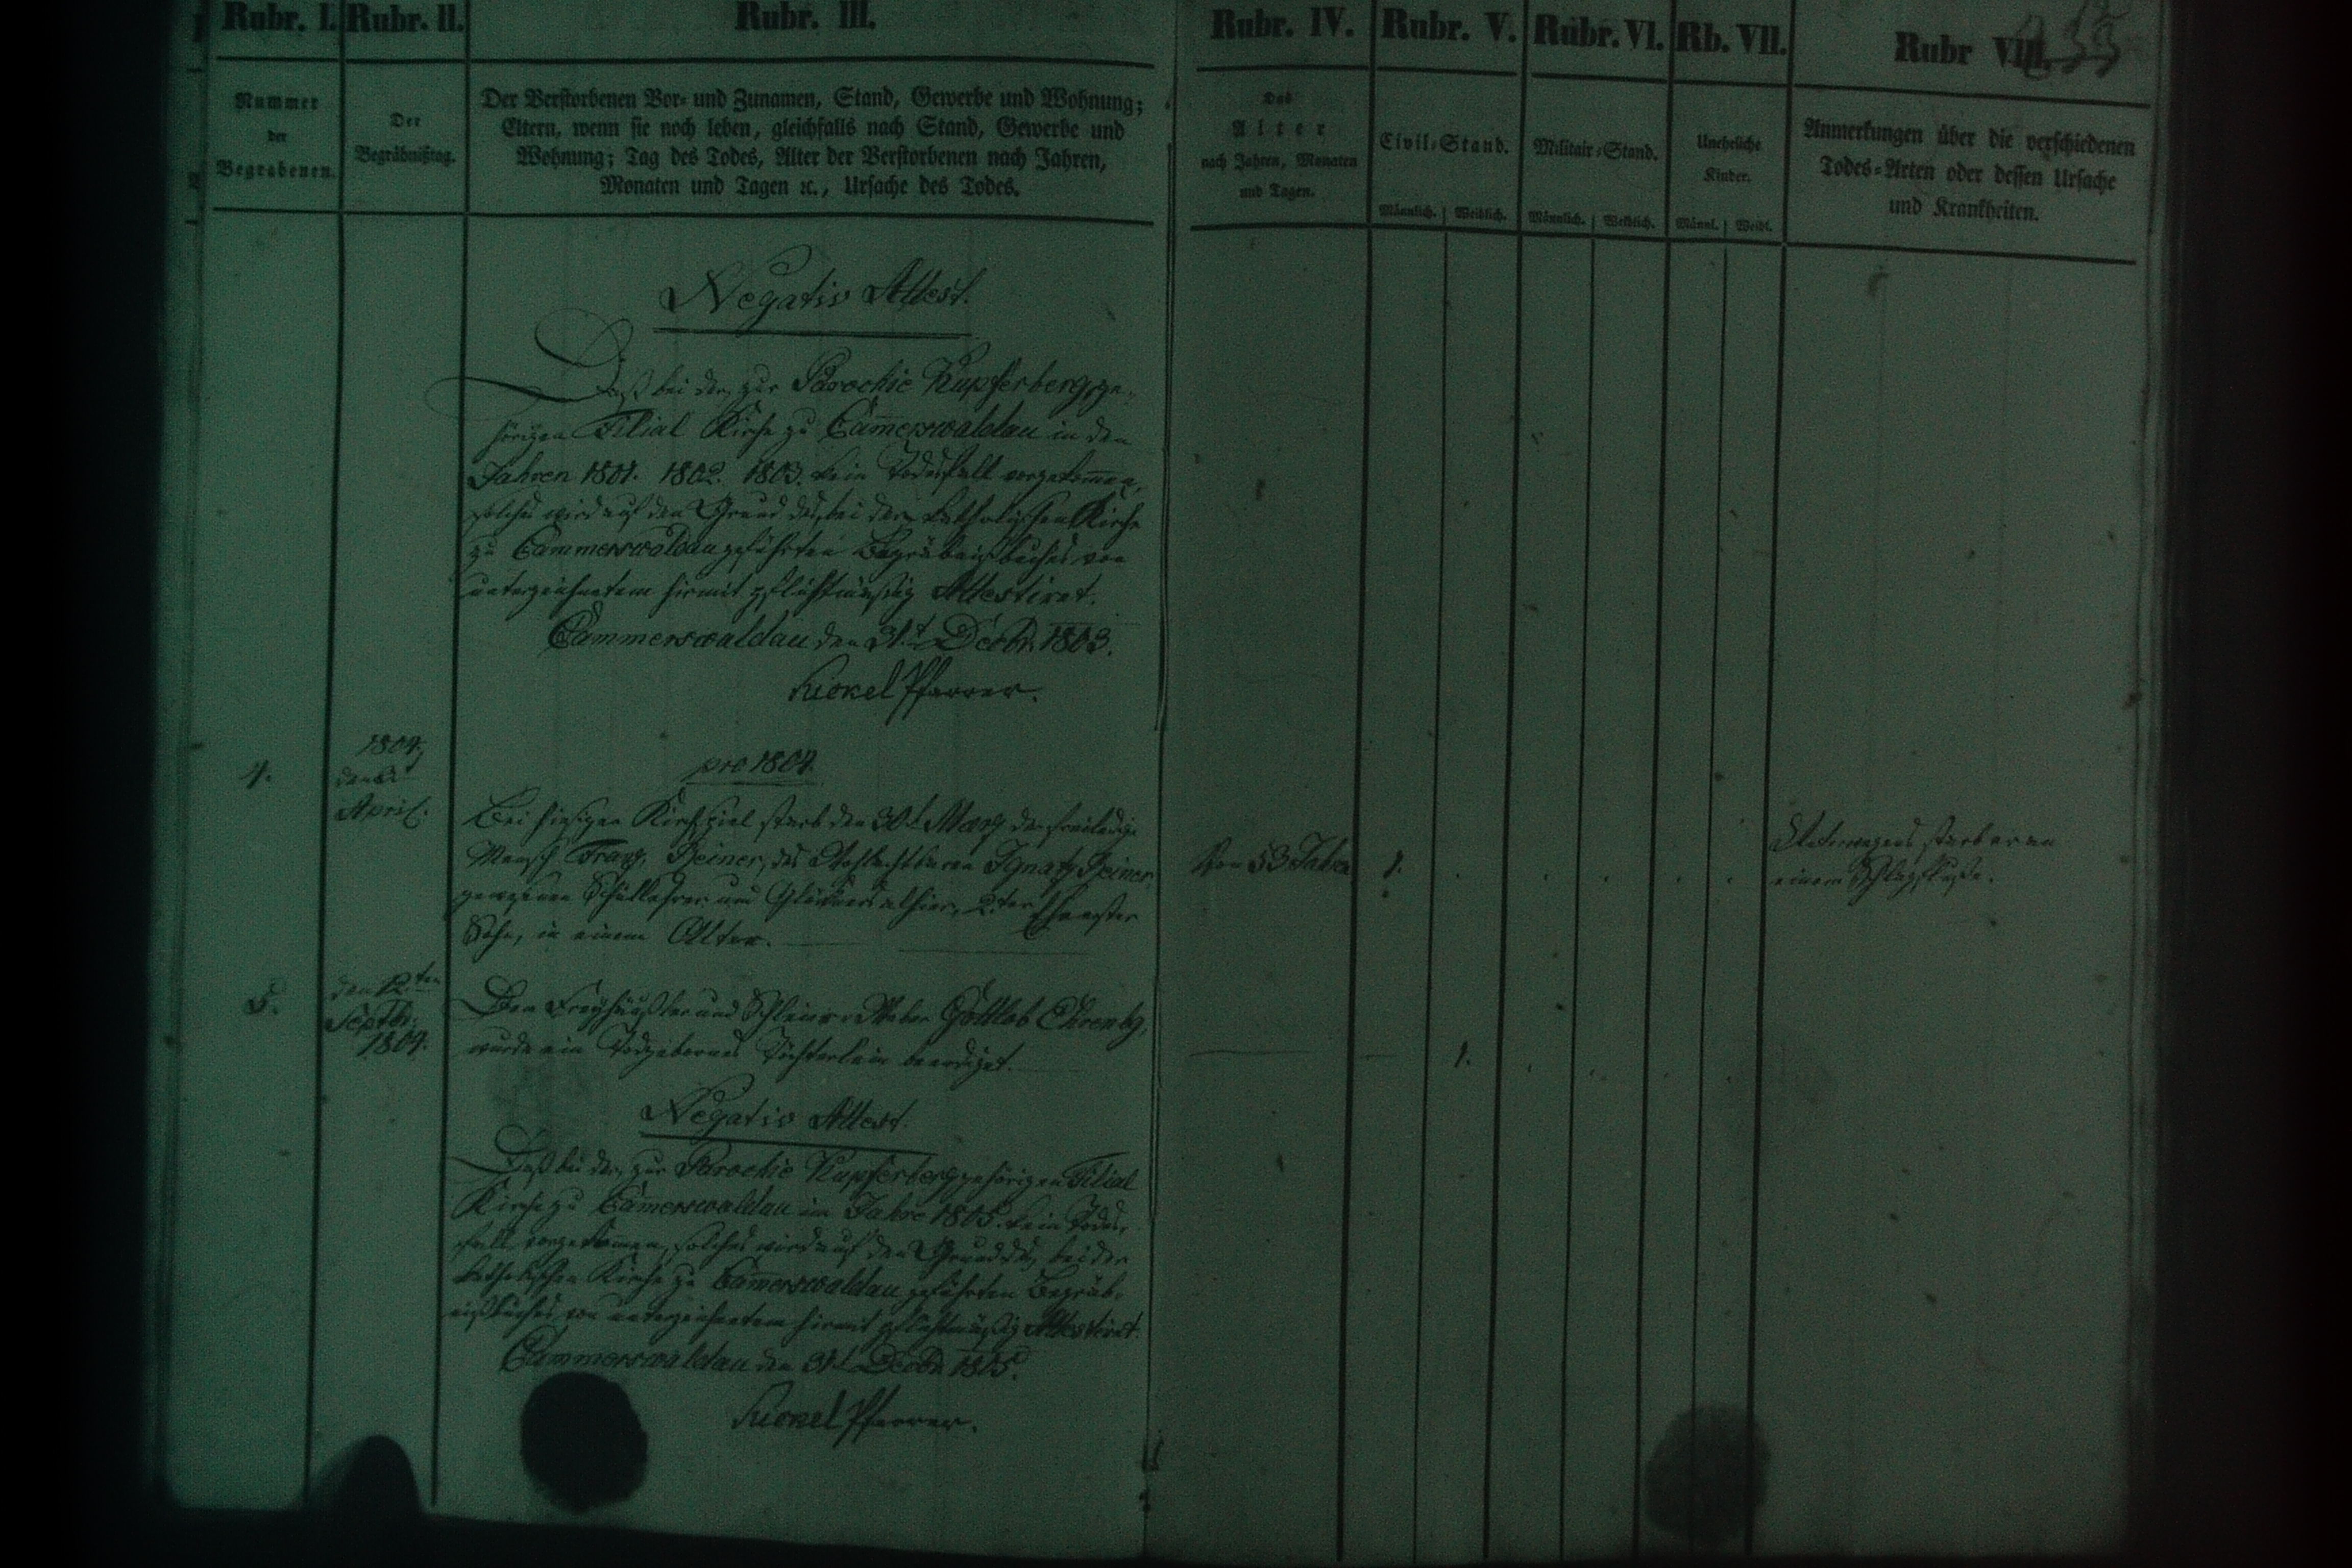 Rubr. I. Rubr. II. Rubr. III. Rubr. IV. Rubr. V. Rubr. VI. Rb. VII. Rubr VIII.
Nummer
der
Begrabenen.
Der
Begräbnißtag.
Der Verstorbenen Vor- und Zunamen, Stand, Gewerbe und Wohnung;
Eltern, wenn sie noch leben, gleichfalls nach Stand, Gewerbe und
Wohnung; Tag des Todes, Alter der Verstorbenen nach Jahren,
Monaten und Tagen ꝛc., Ursache des Todes.
Das
Alter
nach Jahren, Monaten
und Tagen.
Civil-Stand.
Männlich. Weiblich.
Militair-Stand.
Männlich. Weiblich.
Uneheliche
Kinder.
Männl. Weibl.
Anmerkungen über die verschiedenen
Todes-Arten oder dessen Ursache
und Krankheiten.
Negativ Attest.
Daß bei der, zur Parochie Kupferberg ge-
hörigen Filial Kirche zu Cam̅erswaldau in den
Jahren 1801. 1802. 1803. kein Todesfall vorgekom̅en,
solches wird auf den Grund des, bei der katholischen Kirche
zu Cammerswaldau geführten Begräbnißbuches von
unterzeichnetem hiermit pflichtmäßig Attestiret.
Cammerswaldau den 31.t Decbr. 1803.
Pfarrer.
4.
1804.
April.
pro 1804.
Bei hiesigen Kirchspiel starb den 30.t Marz der
Mensch Franz, des Ignatz
gewesenen Schullehrer und Glöckners alhier, 2.ter
Sohn, in einem Alter.
Von 53 Jahren
1.
Unterwegens starb er an
einem Schlagfluße.
5.
den 12.ten
Septbr.
1804.
Den Freyhäußler und Weber Gottlob
wurde ein Todgebornes Töchterlein beerdiget.
1.
Negativ Attest.
Daß bei der, zur Parochie Kupferberg gehörigen Filial
Kirche zu Cam̅erswaldau im Jahre 1805. kein Todes-
fall vorgekom̅en, solches wird auf den Grund des, bei der
katholischen Kirche zu Cam̅erswaldau geführten Begräb-
nißbuches von unterzeichnetem hiermit pflichtmäßig Attestiret.
Cammerswaldau den 31.t Decbr. 1805.
Pfarrer.